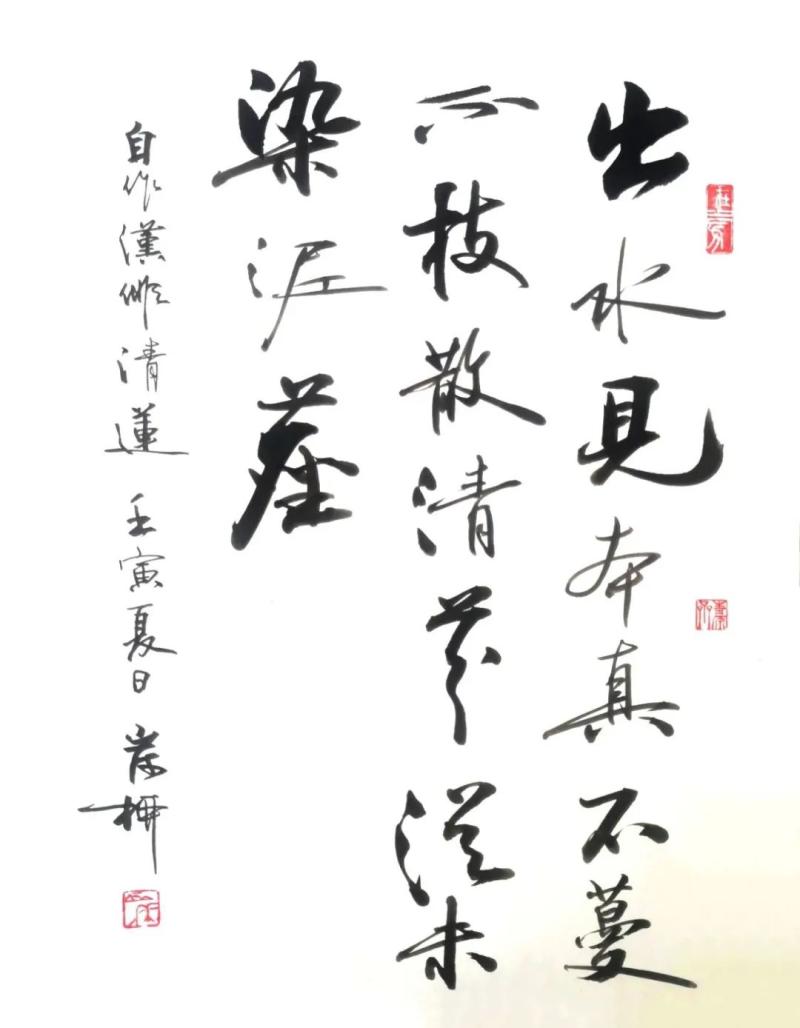 出水見本真不蔓
不枝散清芬從未
染泥塵
自作漢俳清蓮 壬寅夏日